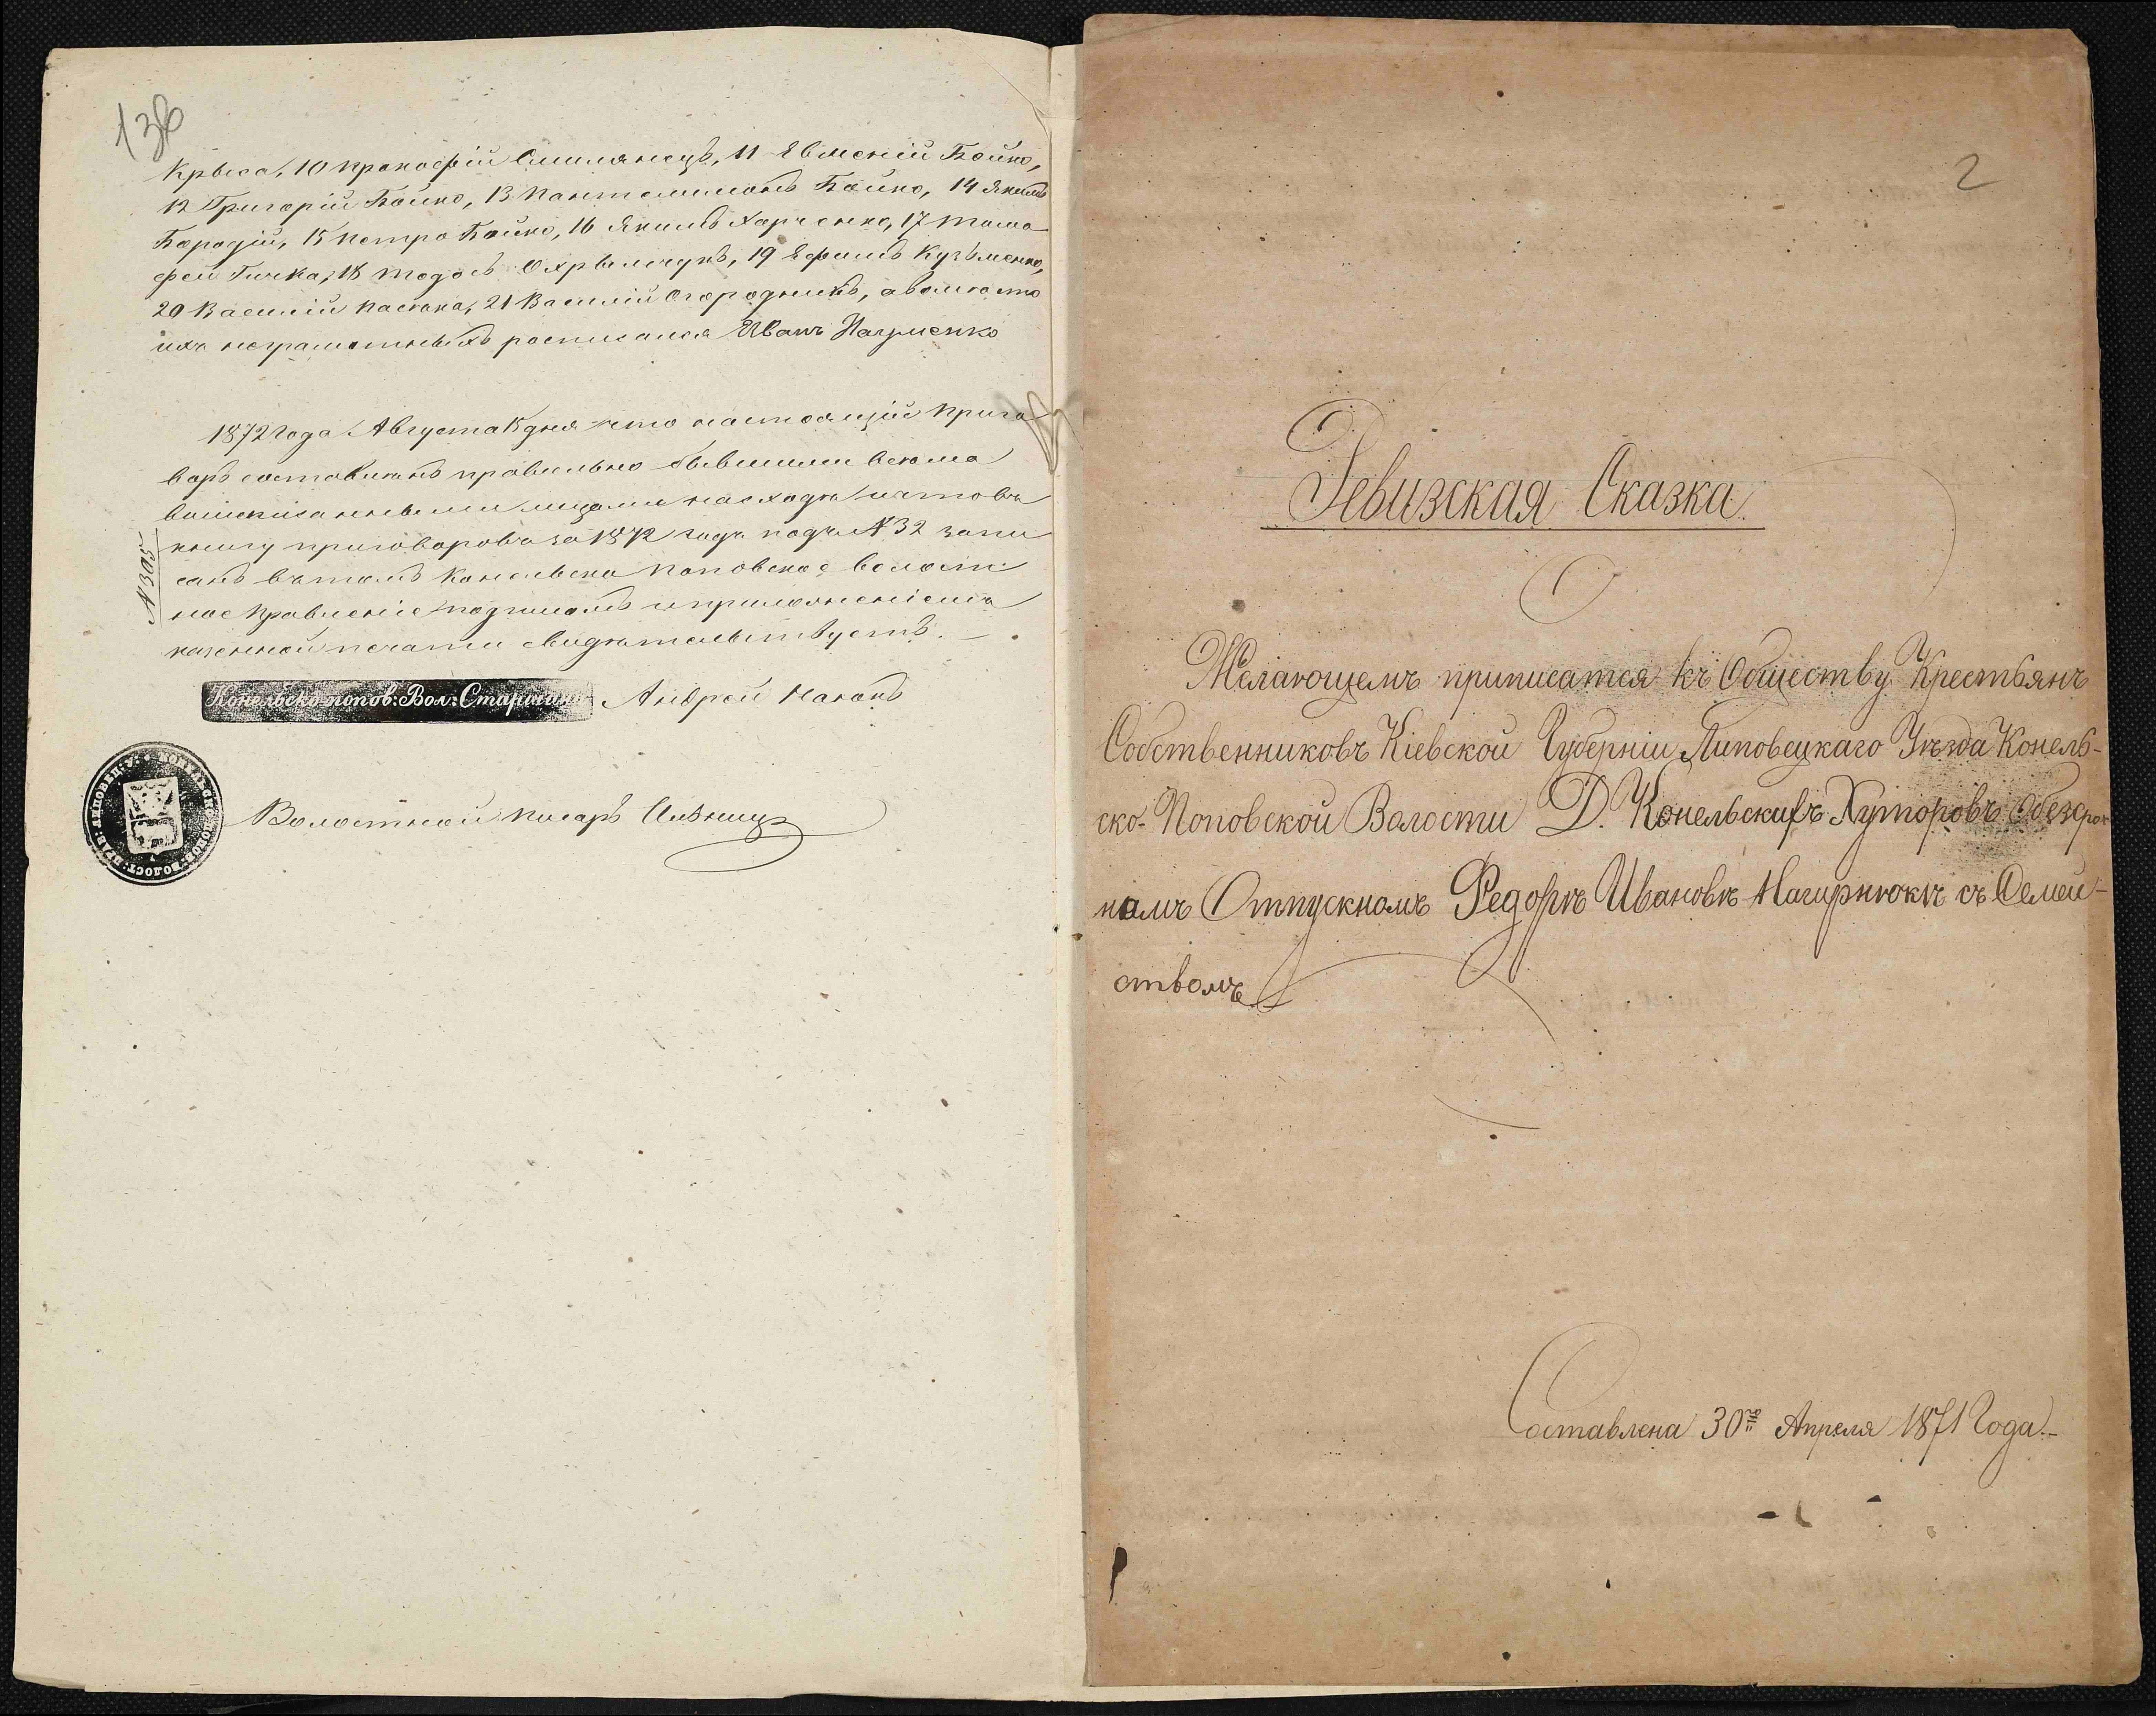 138
Крыса, 10 Прокофій Смилянецъ, 11 Евмений Бойко,
12 Григорій Бойко, 13 Пантелимонъ Бойко, 14 Якимъ
Бородій, 15 Петро Бойко, 16 Якимъ Харченко, 17 Тимо
фей Гичка, 18 Тодось Охрымчукъ, 19 Ефимъ Кузьменко,
20 Василій 21 Василій Огородникъ, а вместо
ихъ неграмотныхъ росписался Иванъ Науменко
1872 года Августа дня что настоящій приго
воръ составленъ правильно бывшими всеми
вышеписанными лицами на сходѣ и что въ
книгу приговоровъ за 1872 годъ подъ № 32 запи
санъ въ томъ Конельско Поповское волост
ное Правленіе подписомъ и приложеніемъ
казенной печати свидѣтельствуетъ. –
№ 305
Конельско-попов: Вол: Старшина Андрей
Волостной писарь
2
Ревизская Сказка
О
Желающемъ приписатся къ Обществу Крестьянъ
Собственниковъ Кіевской Губерніи Липовецкаго Уѣзда Конель-
ско-Поповской Волости Д. Конельскихъ Хуторовъ о безсроч
номъ Отпускномъ Федорѣ Ивановѣ Нагирнюкѣ съ Семей-
ствомъ
Составлена 30го Апреля 1871 Года.–